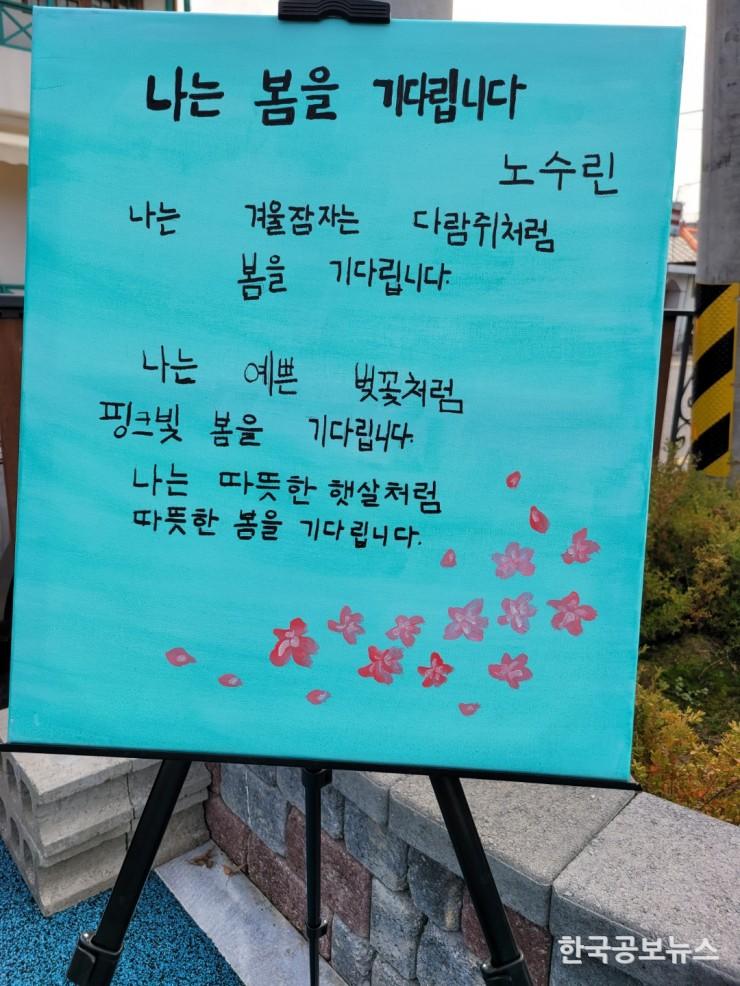 나는 봄을 기다립니다
노수린
나는 겨울잠자는 다람쥐처럼
봄을 기다립니다.
나는 예쁜 벚꽃처럼
핑크빛 봄을 기다립니다.
나는 따뜻한 햇살처럼
따뜻한 봄을 기다립니다.
한국공보뉴스